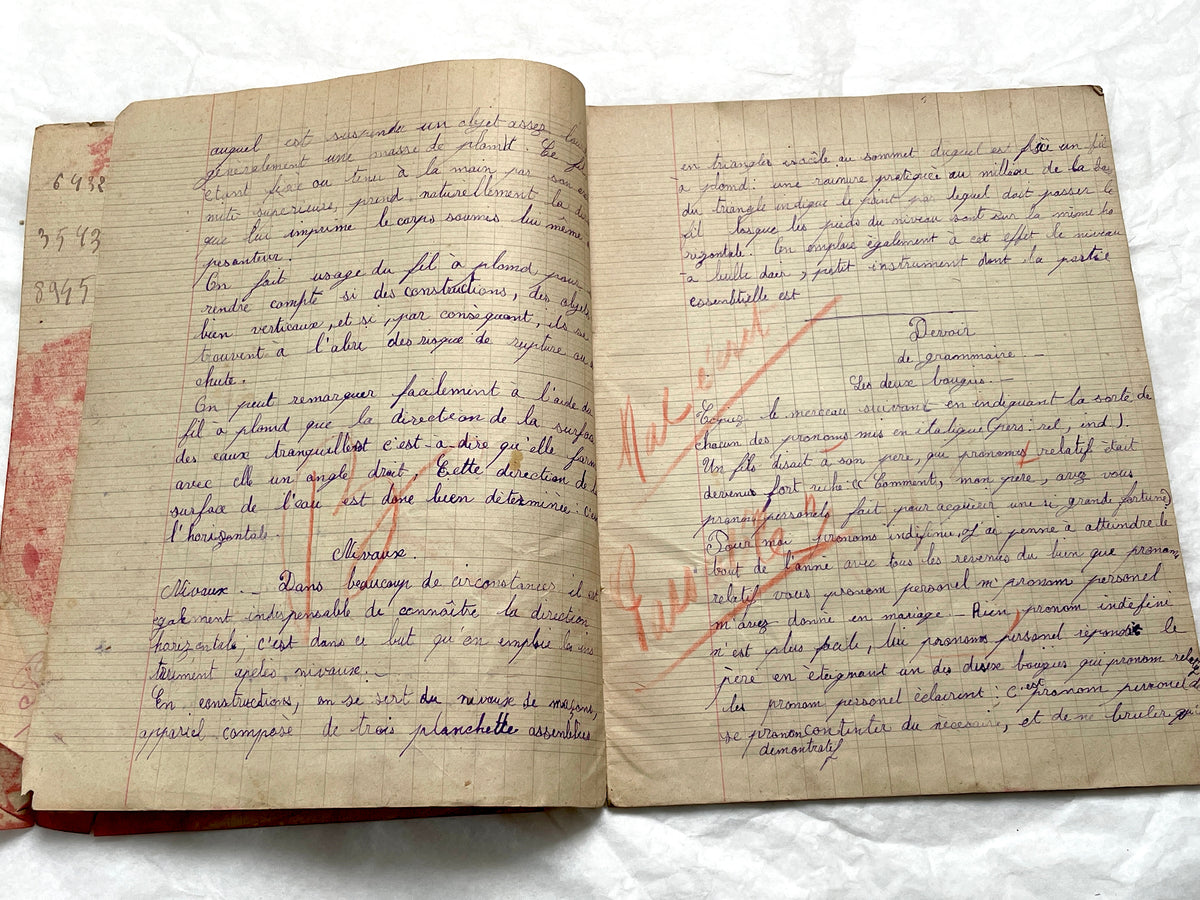 6432
3543
8945
auquel est suspendu un objet assez
généralement une masse de plomd. Le
étant fixé ou tenu à la main par son
mité superieure, prend naturellement la
que lui imprime le corps soumis lui même
pesanteur.
On fait usage du fil à plomd pour
rendre compte si des constructions, des objets
bien verticaux, et si, par conséquant, ils se
trouvent à l'abri des risque de rupture ou
chute.
On peut remarquer facilement à l'aide du
fil à plomd que la direction de la surface
des eaux tranquillest c'est-a-dire qu'elle forme
avec elle un angle droit. Cette direction de
surface de l'eau est donc bien déterminée: c'est
l'horizontale.
Nivaux.
Nivaux. — Dans beaucoup de circonstances il est
egalement indispensable de connaître la direction
horizontale; c'est dans ce but qu'on emploie les ins
trument apelés nivaux. —
En constructions, on se sert du nivaux de maçons,
appariel composé de trois planchette assemblées
en triangles isocèle au sommet duquel est fixé un fil
à plomd: une rainure pratiquée au millieu de la bas
du triangle indique le point par lequel doit passer le
fil losque les pieds du niveau sont sur la même ho
rizontale. On emploie également à cet effet le niveau
à bulle dair, petit instrument dont la partie
essentielle est
Devoir
de grammaire. —
Les deux bougies. —
Mal écrit
Copiez le morceau suivant en indiquant la sorte de
chacun des pronoms mis en italique (pers. rel, ind.).
Un fils disait à son père, qui pronoms relatif était
devenus fort riche: Comment, mon père, avez vous
pronom personels fait pour acquérir une si grande fortune
Pour moi pronoms indéfinie, j'ai penne a atteindre le
bout de l'année avec tous les revenus du bien que pronom
relatif vous pronom personel m' pronom personel
m'avez donné en mariage — Rien, pronom indéfini
n'est plus facile, lui pronoms personel répondit le
père en éteignant un des deux bougies qui pronom relatif
les pronom personel éclairent: c'est pronom personel d
se pronon continter du nécesaire, et de ne bruler qu'
demontratif